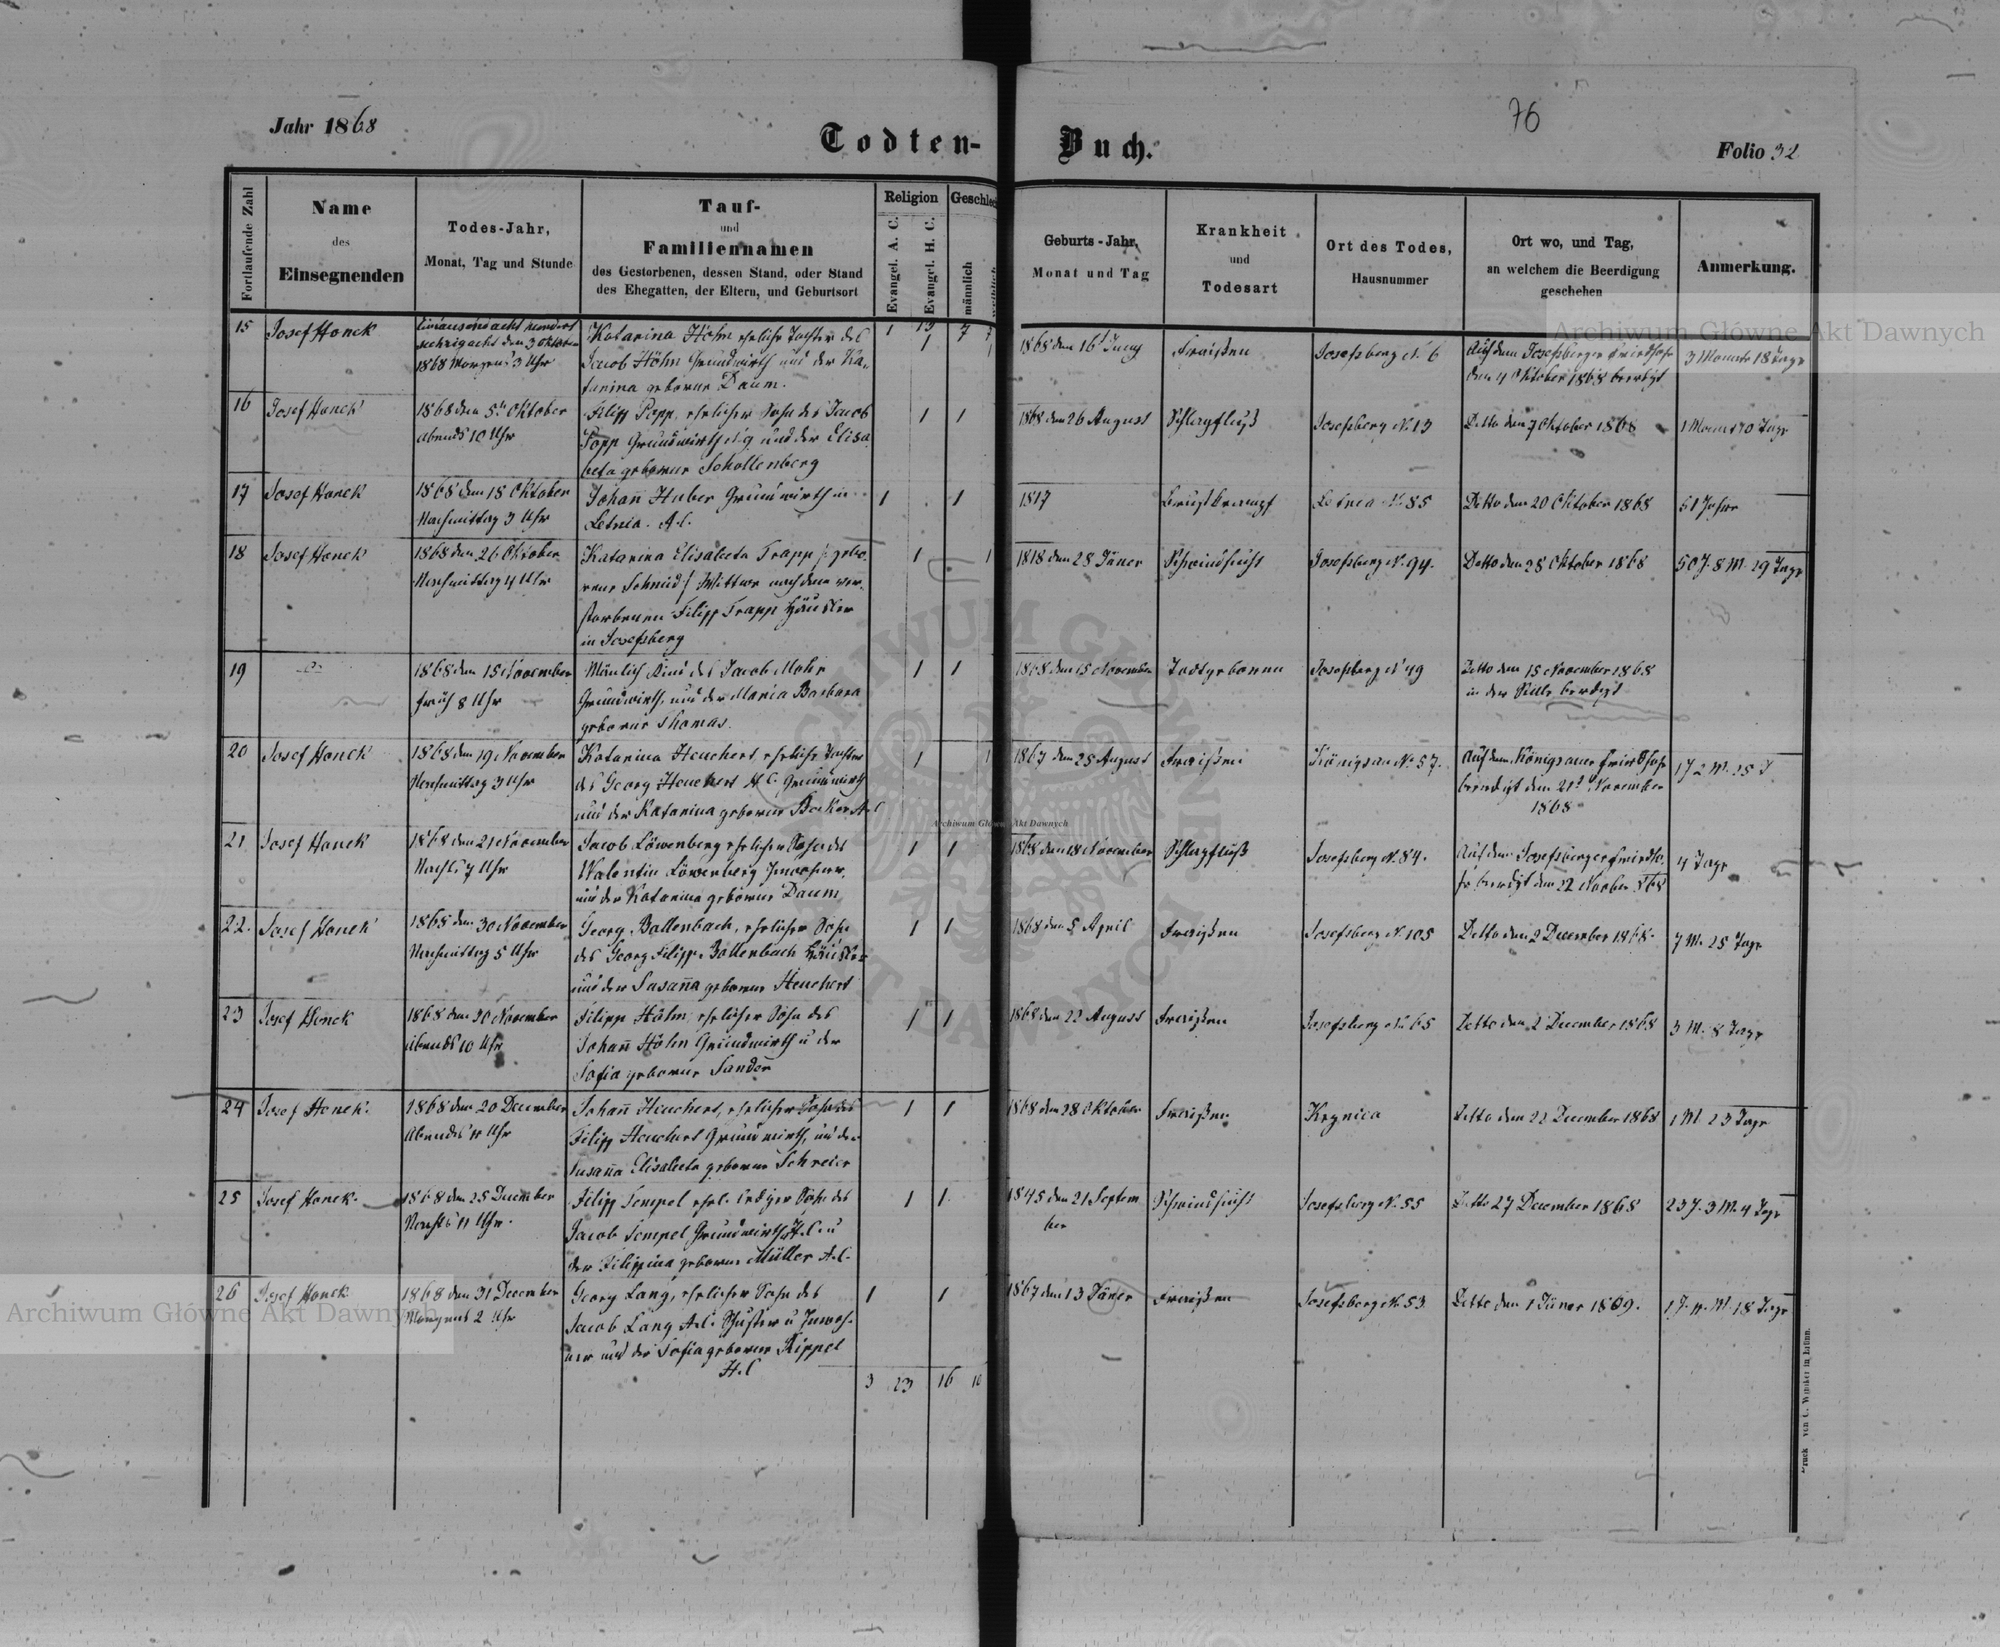 Jahr 1868
Todten-Buch.
76
Folio 32
Fortlaufende Zahl
Name
des
Einsegnenden
Todes-Jahr,
Monat, Tag und Stunde
Tauf-
und
Familiennamen
des Gestorbenen, dessen Stand, oder Stand
des Ehegatten, der Eltern, und Geburtsort
Religion
Evangel. A. C.
Evangel. H. C.
Geschlecht
männlich
weiblich
Geburts-Jahr,
Monat und Tag
Krankheit
und
Todesart
Ort des Todes,
Hausnummer
Ort wo, und Tag,
an welchem die Beerdigung
geschehen
Anmerkung.
15
Josef Honek
Eintausend acht hundert
sechzigacht den 3 Oktober
1868 Morgens 3 Uhr
Katarina Höhn eheliche Tochter des
Jacob Höhn Grundwirth und der Ka-
tarina geborne Daum.
1868 den 16t Juny
Fraißen
Josefsberg N. 6
Auf dem Josefsberger Friedhofe
den 4 Oktober 1868 beerdigt
3 Monate 18 Tage
16
Josef Honek
1868 den 5t Oktober
Abends 10 Uhr
Filipp Popp, ehelicher Sohn des Jacob
Popp Grundwirth und der Elisa
beta geborne Schollenberg
1 1
1868 den 26 August
Schlagfluß
Josefsberg N. 13
Detto den 7 Oktober 1868
1 Monat 10 Tage
17
Josef Honek
1868 den 18 Oktober
Nachmittag 3 Uhr
Johan̄ Huber Grundwirth in
Letnia. A.C.
1 1
1817
Brustkrampf
Letnia N. 85
Detto den 20 Oktober 1868
51 Jahre
18
Josef Honek
1868 den 26 Oktober
Nachmittag 4 Uhr
Katarina Elisabeta Trapp /: gebo-
rene Schmid :/ Wittwe nach dem ver-
storbenen Filipp Trapp Häusler
in Josefsberg
1 1
1818 den 28 Jäner
Schwindsucht
Josefsberg N. 94.
Detto den 28 Oktober 1868
50 J. 8 M. 29 Tage
19
1868 den 15 November
früh 8 Uhr
Mänlich Kind des Jacob Mohr
Grundwirth, und der Maria Barbara
geborne Thomas.
1 1
1868 den 15 November
Todtgeboren
Josefsberg N 49
Detto den 15 November 1868
in der Stille beerdigt
20
Josef Honek
1868 den 19 November
Nachmittag 3 Uhr
Katarina Heuchert, eheliche Tochter
des Georg Heuchert H.C. Grundwirth
und der Katarina geborne Becker A.C
1 1
1867 den 25 August
Fraißen
Königsau N. 57.
Auf dem Königsauer Friedhofe
beerdigt den 21t November
1868
1 J 2 M. 25 T
21
Josef Honek
1868 den 21 November
Nachts 7 Uhr
Jacob Löwenberg ehelicher Sohn des
Walentin Löwenberg Inwohner,
und der Katarina geborne Daum
1 1
1868 den 18 November
Schlagfluß
Josefsberg N. 84.
Auf dem Josefsberger Friedho-
fe beerdigt den 22 November 868
4 Tage
22.
Josef Honek
1868 den 30 November
Nachmittag 5 Uhr
Georg Bollenbach, ehelicher Sohn
des Georg Filipp Bollenbach Häusler
und der Susan̄a geborne Heuchert
1 1
1868 den 5 April
Fraißen
Josefsberg N. 105
Detto den 2 December 1868.
7 M. 25 Tage
23
Josef Honek
1868 den 30 November
Abends 10 Uhr
Filipp Höhn, ehelicher Sohn des
Johan̄ Höhn Grundwirth u der
Sofia geborne Sander
1 1
1868 den 22 August
Fraißen
Josefsberg N. 65
Detto den 2 December 1868
3 M. 8 Tage
24
Josef Honek.
1868 den 20 December
Abends 11 Uhr
Johan̄ Heuchert, ehelicher Sohn des
Filipp Heuchert Grundwirth, und der
Susan̄a Elisabeta geborne Schreier
1 1
1868 den 28 Oktober
Fraißen
Krynica
Detto den 22 December 1868
1 M. 23 Tage
25
Josef Honek.
1868 den 25 December
Nachts 11 Uhr.
Filipp Sempel ehel. lediger Sohn des
Jacob Sempel Grundwirth H.C. u
der Filippina geborne Müller A.C.
1 1.
1845 den 21 Septem
ber
Schwindsucht
Josefsberg N. 55
Detto 27 December 1868
23 J. 3 M. 4 Tage
26
Josef Honek
1868 den 31 December
Morgens 2 Uhr
Georg Lang, ehelicher Sohn des
Jacob Lang A.C. Schuster u Inwoh-
ner und der Sofia geborne Kippel
H.C
1 1
1867 den 13 Jäner
Fraißen
Josefsberg N. 53
Detto den 1 Jäner 1869.
1 J. 11 M. 18 Tage
3 23 16 10
Archiwum Główne Akt Dawnych
Archiwum Główne Akt Dawnych
Archiwum Główne Akt Dawnych